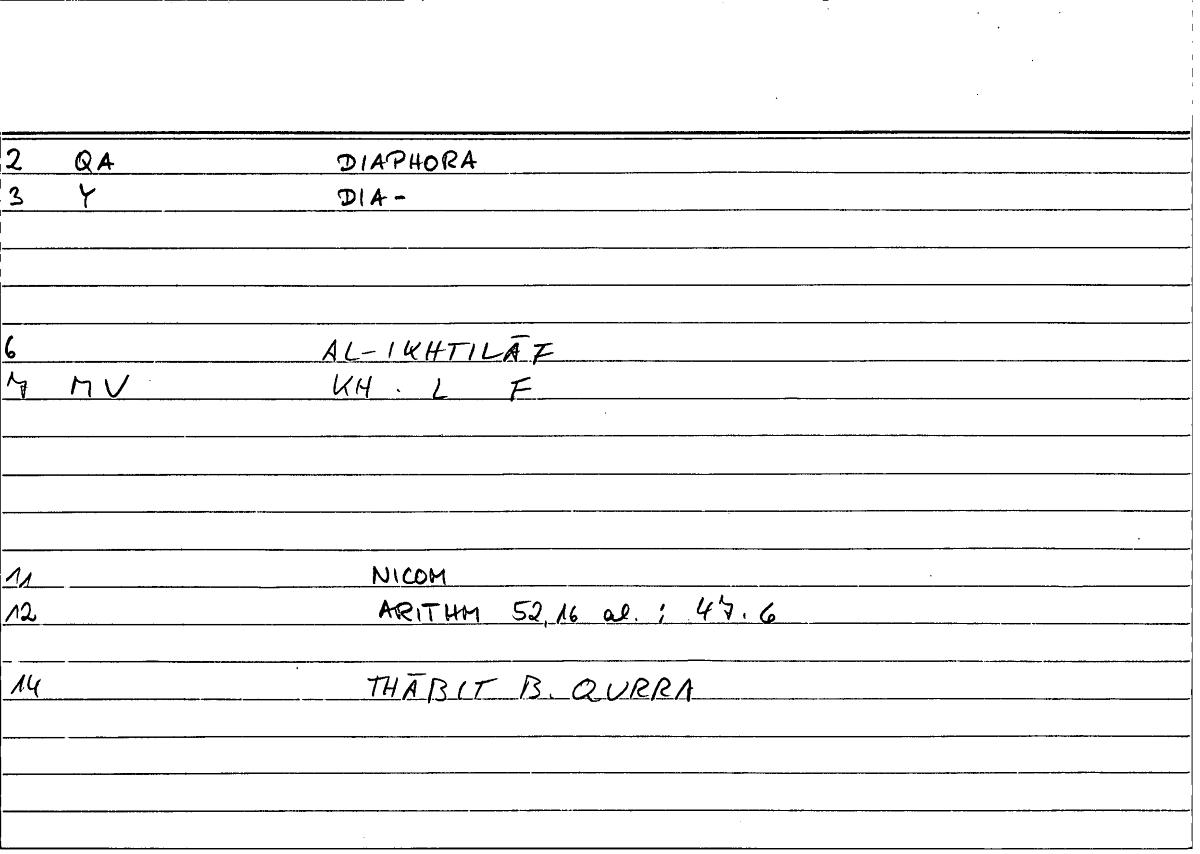 2 QA DIAPHORA
3 Y DIA-
6 AL-IKHTILĀF
7 MV KH . L F
11 NICOM
12 ARITHM 52,16 al. ; 47.6
14 THĀBIT B. QURRA